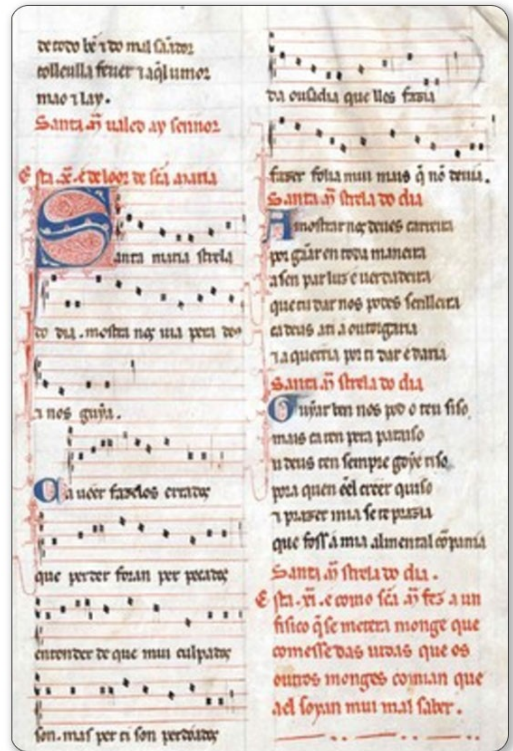 de todo bē ⁊ do mal sāador
tolleulla feuer ⁊ aq̄l umor
mao ⁊ lay.
Santa m̄ ualed ay sennor
Esta .x. é de loor de sc̄ā maria
Santa maria strela
do dia. mostra nos uia pera deus
⁊ nos guya.
Ca ueer fazelos errados
que perder foran per pecados
entender de que mui culpados
son. mas per ti son perdõados
da ousadia que lles fazia
fazer folia mui mais q̄ nō deuia.
Santa m̄ strela do dia
Amostrar nos deues carreira
por gāar en toda maneira
a sen par luz e uerdadeira
que tu dar nos podes senlleira
ca deus a ti a outorgaria
⁊ a querria por ti dar e daria
Santa m̄ strela do dia
Guyar ben nos pod o teu siso
mais ca ren pera parayso
u deus ten sempre goye riso
pora quen él creer quiso
⁊ prazer mia se te prazia
que foss a mia alm en tal cōpania
Santa m̄ strela do dia.
Esta .xi. é como sc̄ā m̄ fez a un
fisico q̄ se metera monge que
comesse das uidas que os
outros monges comian que
a el soyan mui mal saber.